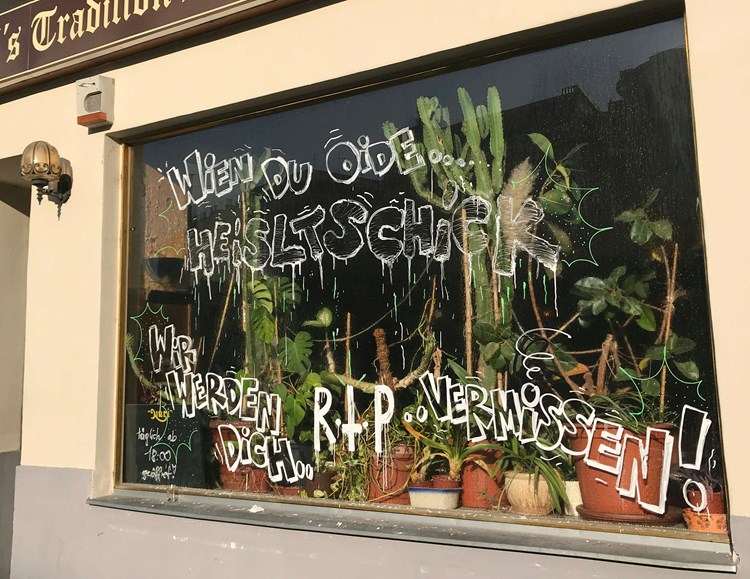 's Tradition
WIEN DU OIDE.....
HEISLTSCHICK
WIR
WERDEN
DICH..
R.I.P..
VERMISSEN!
täglich ab
18:00
geöffnet!